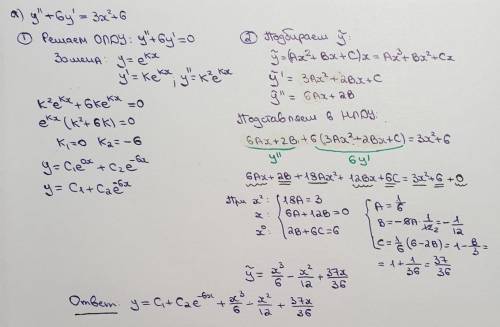 a) y''+6y'=3x²+6
① Решаем ОЛДУ: y''+6y'=0
Замена: y=e^{kx}
y'=ke^{kx}, y''=k²e^{kx}
k²e^{kx}+6ke^{kx}=0
e^{kx}(k²+6k)=0
k₁=0 k₂=-6
y=C₁e^{0x}+C₂e^{-6x}
y=C₁+C₂e^{-6x}
② Подбираем ỹ:
ỹ=(Ax²+Bx+C)x=Ax³+Bx²+Cx
ỹ'=3Ax²+2Bx+C
ỹ''=6Ax+2B
Подставляем в НЛДУ:
6Ax+2B+6(3Ax²+2Bx+C)=3x²+6
y'' 6y'
6Ax+2B+18Ax²+12Bx+6C=3x²+6+0
При x²: 18A=3
x: 6A+12B=0
x⁰: 2B+6C=6
A=1/6
B=-6A·1/12=-1/12
C=1/6(6-2B)=1-B/3=
=1+1/36=37/36
ỹ=x³/6-x²/12+37x/36
Ответ: y=C₁+C₂e^{-6x}+x³/6-x²/12+37x/36